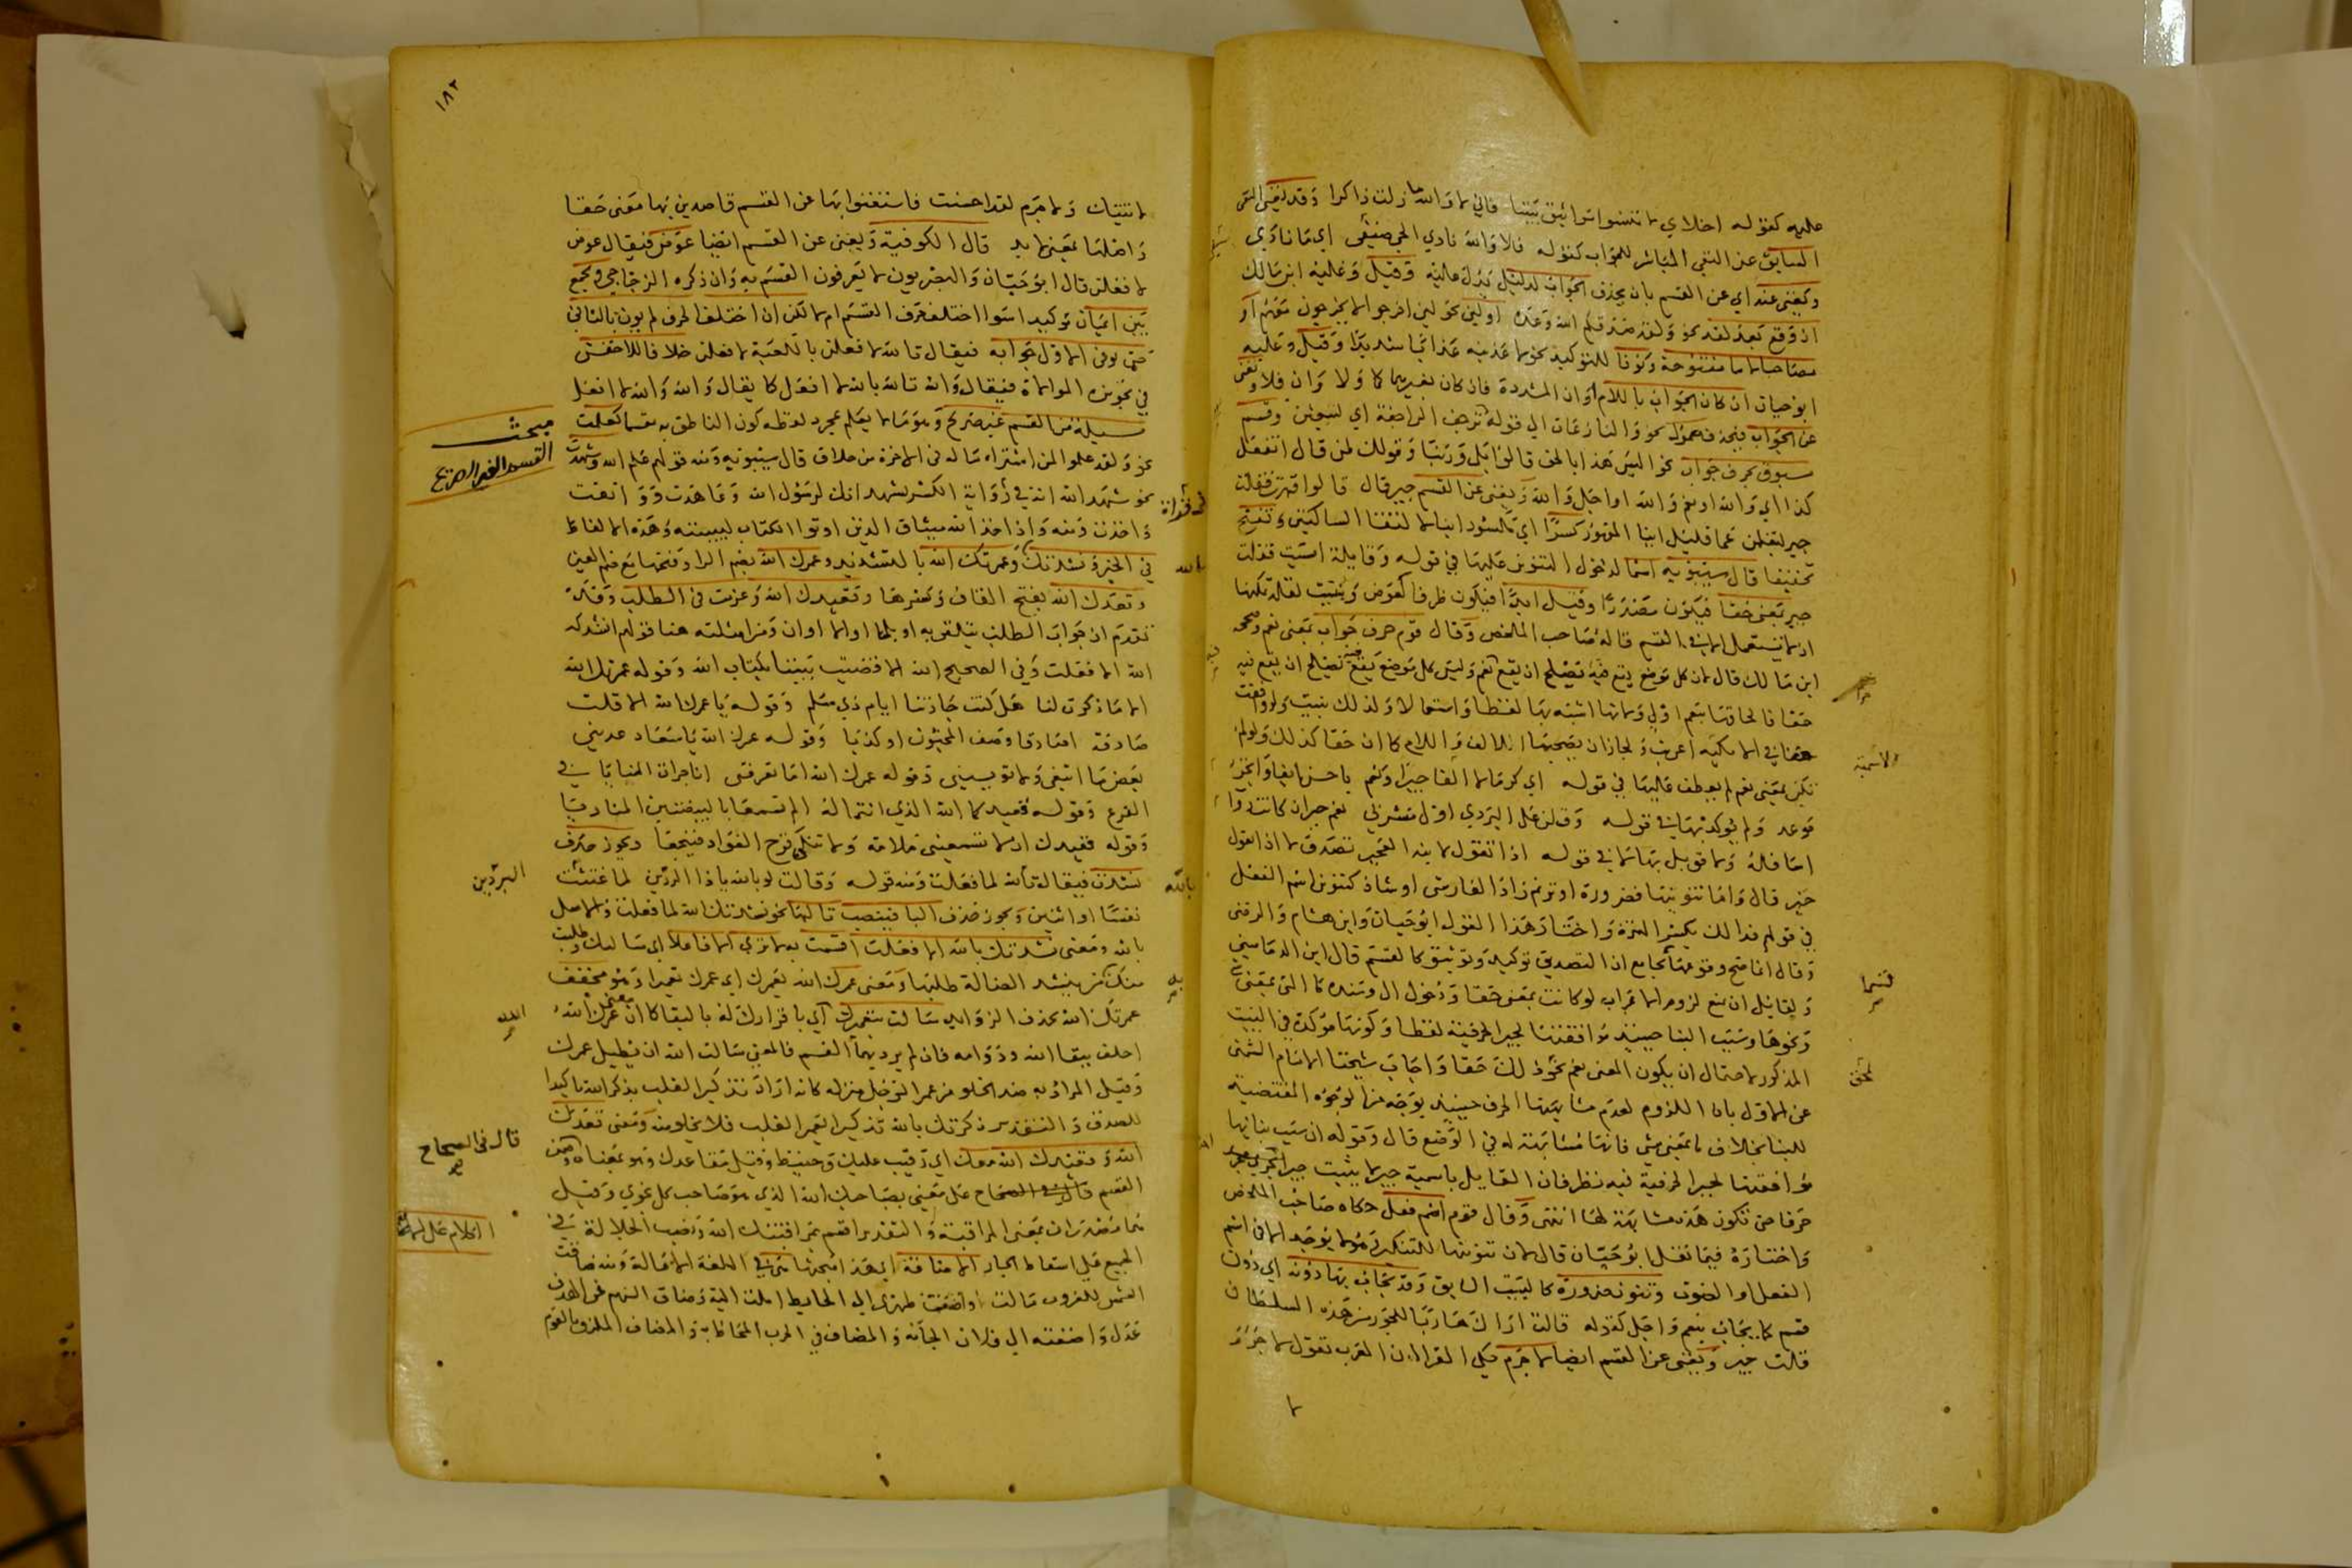 عليه كقوله اخلاي لا تنسوا مواثيق بيننا فاني لا والله ما زلت ذاكرا وقد يغني النفي
السابق عن النفي المباشر للجواب كقوله فلا والله نادى الحي ضيفي اي ما نادى
ويغني عنه اي عن القسم بان يحذف الجواب لدليل يدل عليه وقيل وعليه ابن مالك
ان وقع بعد لقد نحو ولقد صدقكم الله وعده او لئن نحو لئن اخرجوا لا يخرجون معهم او
مصاحبا لام مفتوحة ونونا للتوكيد نحو لاعذبنه عذابا شديدا وقيل وعليه
ابو حيان ان كان الجواب باللام او ان المشددة فان كان بغيرهما كما ولا وان فلا ويغني
عن الجواب فيحذف معمول نحو والنازعات الى قوله ترجف الراجفة اي لتبعثن وقسم
مسبوق بحرف جواب نحو اليس هذا بالحق قالوا بلى وربنا وقولك لمن قال اتفعل
كذا اي والله او نعم والله او اجل والله ويغني عن القسم جير قال قالوا قهرت فقلت
جير ليعلمن عما قليل اينا المقهور كسرا اي مكسور البنا لالتقا الساكنين وتفتح
تخفيفا قال سيبويه اسما لدخول التنوين عليها في قوله وقايلة اسيت فقلت
جير بمعنى حقا فيكون مصدرا وقيل ابدا فيكون ظرفا كعوض وبنيت لقلة تمكنها
اذ لا تستعمل الا في القسم قاله صاحب الملخص وقال قوم حرف جواب بمعنى نعم وصححه
ابن مالك قال لان كل موضع يقع فيه يصلح ان يقع نعم وليس كل موضع يقع فيه يصلح ان يقع فيه
حقا فالحاقها بنعم اولى ولانها اشبه بها لفظا واستعمالا ولذلك بنيت ولو وافقت
حقا في الاسمية اعربت ولجاز ان يصحبها الالف واللام كما ان حقا كذلك ولو لم
تكن بمعنى نعم لم يعطف عليها في قوله اي كرما لا الفا جير او نعم باحسن ايفا وانجز
موعد ولم يوكد بها في قوله وقلن على البردي اول مشرب نعم جير ان كانت رواء
اسافله ولا قوبل بها لا في قوله اذا تقول لا ابنه العجير تصدق لا اذا تقول
جير قال واما تنوينها فضرورة او ترنم زاد الفارسي او شاذ كتنوين اسم الفعل
في قولهم فدا لك بكسر الهمزة واختار هذا القول ابو حيان وابن هشام والرضي
وقال انما صح وقوعها بجامع ان التصديق توكيد وتوثيق كالقسم قال ابن الدماميني
ولقايل ان يمنع لزوم الاعراب لو كانت بمعنى حقا ودخول ال وسنده ما التي بمعنى شي
ونحوها وسبب البنا حينيذ موافقتها لجير الحرفية لفظا وكونها مؤكدة في البيت
المذكور لاحتمال ان يكون المعنى نعم نحو ذلك حقا واجاب شيخنا الامام الشمني
عن الاول بان اللزوم لعدم مشابهتها الحرف حينيذ بوجه من الوجوه المقتضية
للبنا بخلاف ما بمعنى شي فانها مشابهة له في الوضع قال وقوله ان سبب بنائها
موافقتها لجير الحرفية فيه نظر فان القايل باسمية جير لا يثبت جير
حرفا حتى تكون هذه مشابهة لها انتهى وقال قوم اسم فعل حكاه صاحب الملخص
واختاره فيما نقل ابو حيان قال لان تنوينها للتنكير ولا يوجد الا في اسم
الفعل او الصوت وتنون ضرورة كالبيت السابق وقد يجاب بها دونه اي دون
قسم كما يجاب بنعم واجل كقوله قالت اراك هاربا للجور من هذه السلطان
قلت جير ويغني عن القسم ايضا لا جرم حكى الفراء ان العرب تقول لا جرم
لا
حقا
الاسمية
قسما
لمحق
١٨٢
لاتينك ولا جرم لقد احسنت فاستغنوا بها عن القسم قاصدين بها معنى حقا
واصلها بمعنى لا بد قال الكوفية ويغني عن القسم ايضا عوض فيقال عوض
لا فعلن قال ابو حيان والبصريون لا يعرفون القسم به وان ذكره الزجاجي ويجمع
بين ايمان توكيدا سوا اختلف حرف القسم ام لا لكن ان اختلف الحرف لم يوت بالثاني
حتى يوفى الاول جوابه فيقال تالله لا فعلن بالكعبة لا فعلن خلافا للاخفش
في تجويزه الموالاة فيقال والله تالله بالله لا افعل كما يقال والله والله لا افعل
مسئلة من القسم غير صريح وهو ما لا يعلم بمجرد لفظه كون الناطق به مقسما كعلمت
نحو ولقد علموا لمن اشتراه ما له في الاخرة من خلاق قال سيبويه ومنه قولهم علم الله وشهدت
نحو شهد الله انه في رواية الكسر نشهد انك لرسول الله وعاهدت وواثقت
واخذت ومنه واذ اخذ الله ميثاق الذين اوتوا الكتاب ليبيننه وهذه الالفاظ
في الخبر ونشدتك وعمرتك الله بالتشديد وعمرك الله بضم الرا وفتحها مع فتح العين
وقعدك الله بفتح القاف وكسرها وقعيدك الله وعزمت في الطلب وقد
تقدم ان جواب الطلب يتلقى به او بلما او الا او ان ومن امثلته هنا قولهم انشدك
الله الا فعلت وفي الصحيح الله الا قضيت بيننا بكتاب الله وقوله عمرتك الله
الا ما ذكرت لنا هل كنت جارتنا ايام ذي سلم وقوله يا عمرك الله الا قلت
صادقة اصادقا وصف المجنون او كذبا وقوله عمرك الله يا سعاد عديني
بعض ما ابتغي ولا تويسيني وقوله عمرك الله اما تعرفني انا حراث المنايا في
الفزع وقوله قعيدكما الله الذي انتما له الم تسمعا بالبيضتين المناديا
وقوله قعيدك ان لا تسمعيني ملامة ولا تنكئ قرح الفواد فييجعا ويجوز حذف
نشدت فيقال بالله لما فعلت ومنه قوله وقالت له بالله يا ذا البردين لما غنثت
نفسا او اثنين ويجوز حذف البا فينصب تاليها نحو نشدتك الله لما فعلت والاصل
بالله ومعنى نشدتك بالله الا فعلت اقسمت به لا تزي الا فاعلا اي سالتك وطلبت
منك من ينشد الضالة طلبها ومعنى عمرك الله بعمرك اي عمرك تعميرا وهو مخفف
عمرتك الله بحذف الزوايد سالت بتعميرك اي باقرارك له بالبقا كما ان معنى عمرك الله
احلف ببقا الله ودوامه فان لم يرد بهما القسم فالمعنى سالت الله ان يطيل عمرك
وقيل المراد به ضد الخلو من عمر الرجل منزله كانه اراد تذكير القلب بذكر الله تاكيدا
للصدق والتقدير ذكرتك بالله تذكيرا يعمر القلب فلا يخلو منه ومعنى قعدك
الله وقعيدك الله معك اي رقيب عليك وحفيظ وقيل مقاعدك وهو بمعناه وضمن
القسم قال في الصحاح على معنى يصاحبك الله الذي هو صاحب كل نجوى وقيل
هما مصدران بمعنى المراقبة والتقدير اقسم بمراقبتك الله ونصب الجلالة في
الجميع على اسقاط الجار الاضافة اي هذا مبحثها هي في اللغة الامالة ومنه ضافت
الشمس للغروب مالت واضفت ظهري الى الحايط املت اليه وضاف السهم عن الهدف
عدل واضفته الى فلان الجأته والمضاف في الحرب المحاط به والمضاف الملزق بالقوم
مبحث
القسم الغير الصريح
قراة
بالله
البردين
بالله
به
الله
قال في الصحاح
الكلام على الاضافة